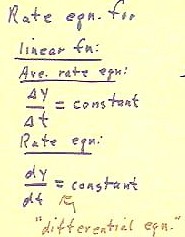 Rate eqn. for
linear fn:
Ave. rate eqn:
ΔY/Δt = constant
Rate eqn:
dy/dt = constant
"differential eqn."